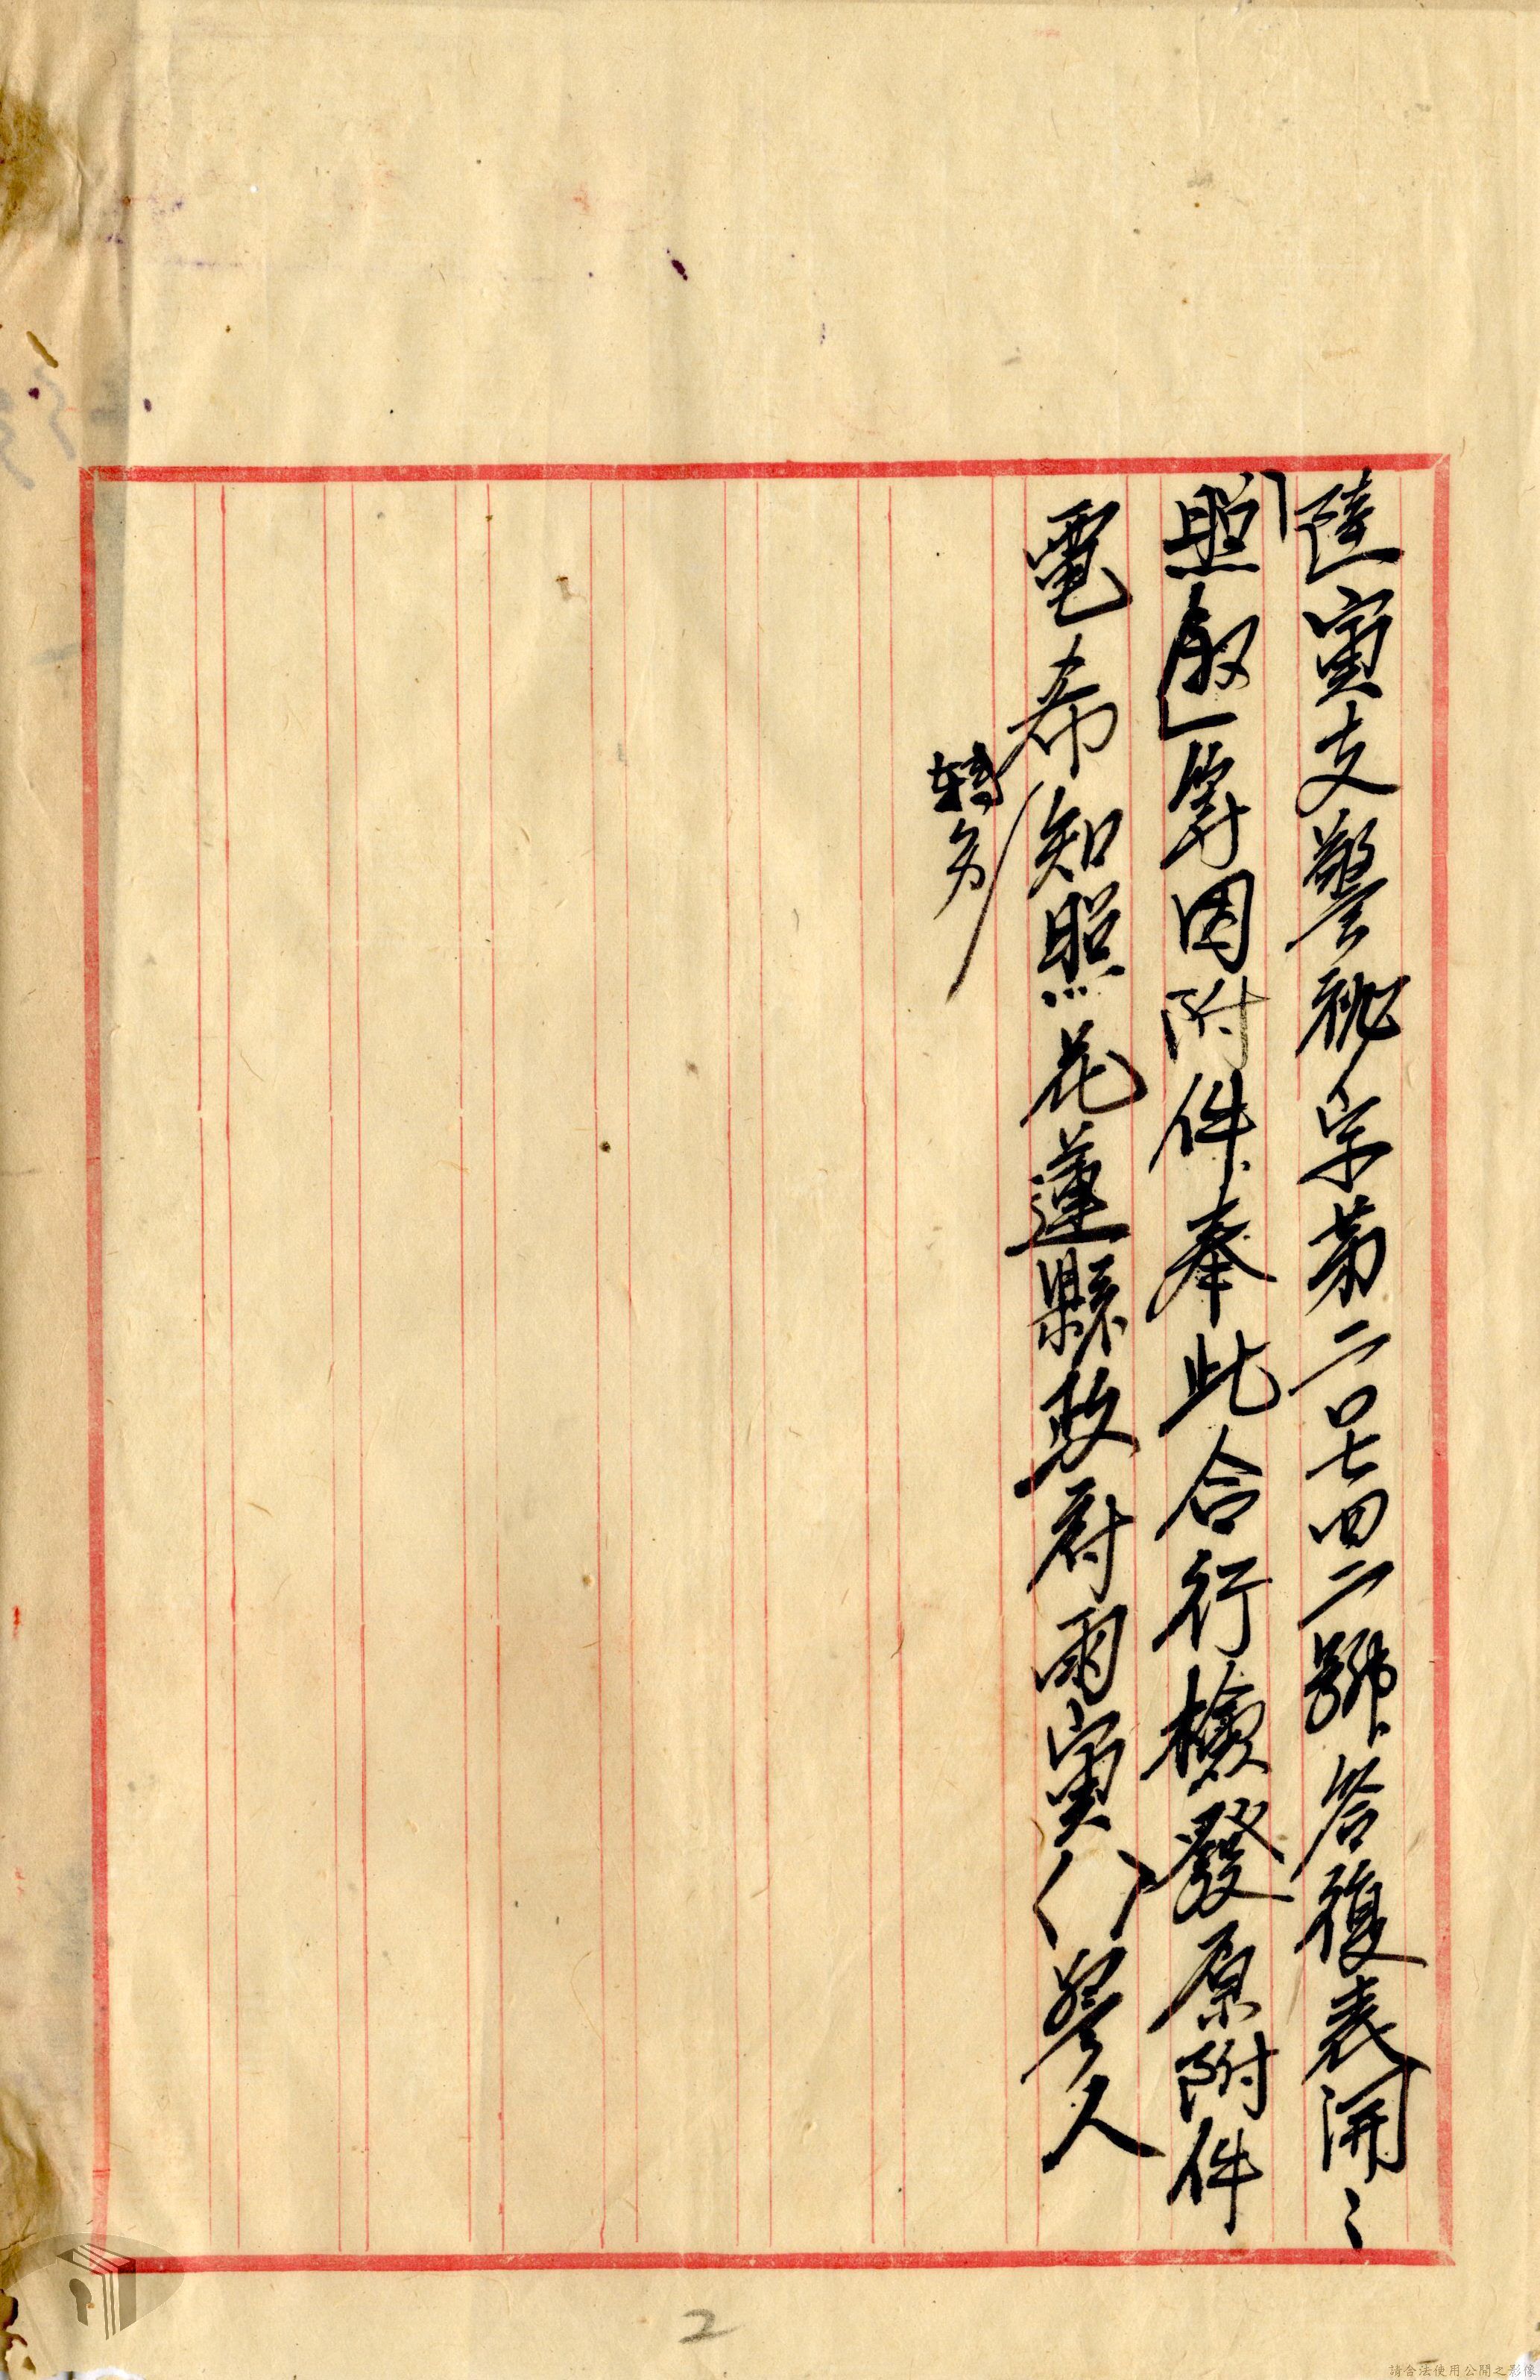 陸寅支警秘字第二〇七四二號答復表開:「
照敘」等因附件奉此合行檢發原附件
電希知照花蓮縣政府 寅( )警人
轉
2
請合法使用公開之影像